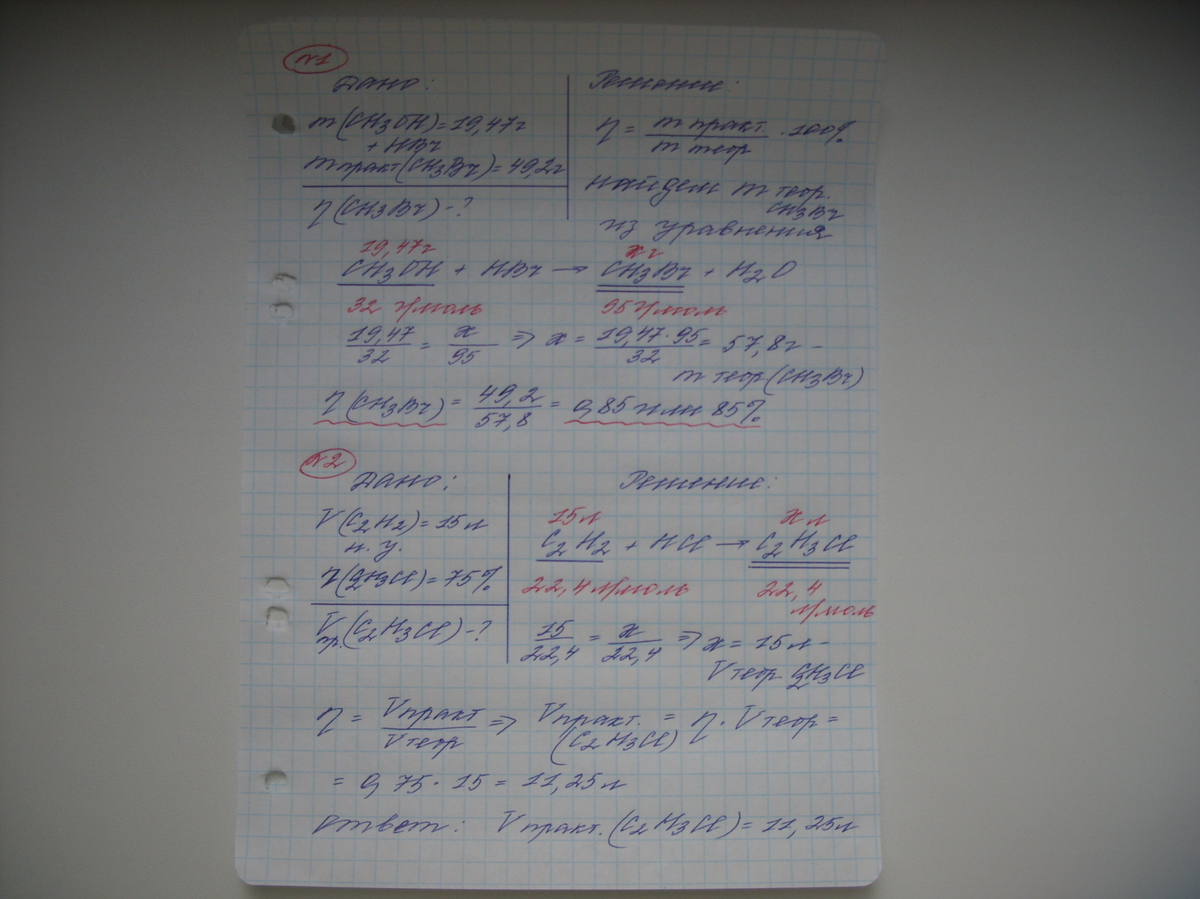 №1
Дано:
m(CH3OH)=19,47г
+ HBr
m практ(CH3Br)=49,2г
η(CH3Br)-?
Решение:
η = m практ. / m теор · 100%
найдем m теор.
CH3Br
из уравнения
19,47г x г
CH3OH + HBr → CH3Br + H2O
32 г/моль 95 г/моль
19,47/32 = x/95 ⇒ x = 19,47·95/32 = 57,8г -
m теор(CH3Br)
η(CH3Br) = 49,2/57,8 = 0,85 или 85%
№2
Дано:
V(C2H2)=15л
н.у.
η(C2H3Cl)=75%
Vпр.(C2H3Cl)-?
Решение:
15л x л
C2H2 + HCl → C2H3Cl
22,4 л/моль 22,4 л/моль
15/22,4 = x/22,4 ⇒ x = 15л -
V теор. C2H3Cl
η = Vпракт/Vтеор ⇒ Vпракт. (C2H3Cl) = η · Vтеор =
= 0,75 · 15 = 11,25л
Ответ: V практ.(C2H3Cl)=11,25л